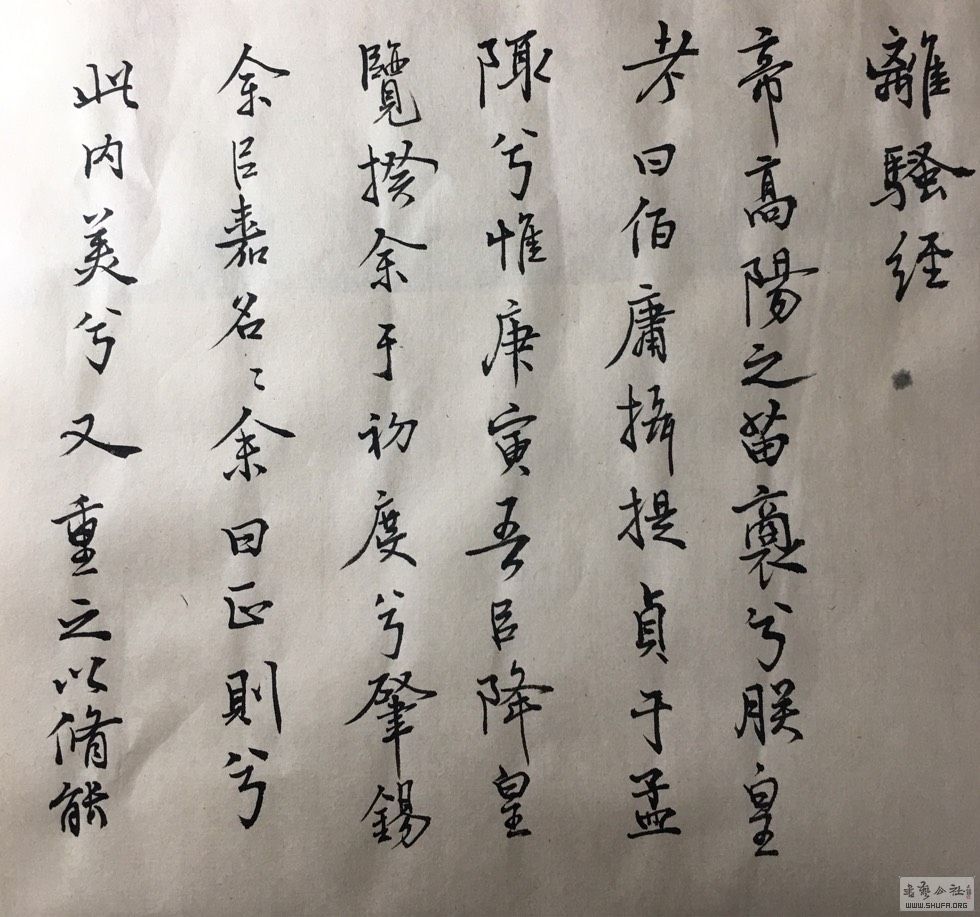 離騷經
帝高陽之苗裔兮朕皇
考曰伯庸攝提貞于孟
陬兮惟庚寅吾㠯降皇
覽揆余于初度兮肇錫
余㠯嘉名〻余曰正則兮
此内美兮又重之以脩能
WWW.SHUFA.ORG